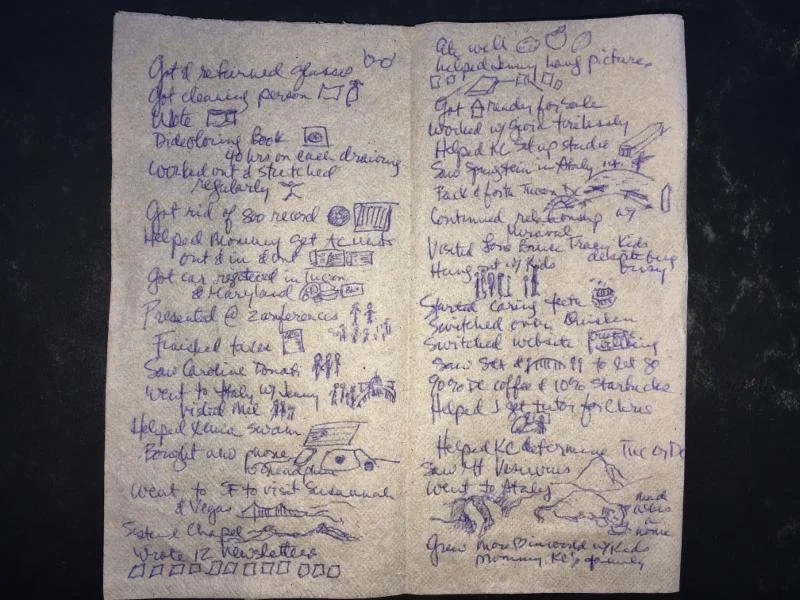 Got & returned glasses
Got cleaning person
Wrote
Didcoloring Book
40 hrs on each drawing
Worked out & stretched
regularly
Got rid of 800 record
Helped Mommy get AC units
out & in & out
Got car registered in Tucson
& Maryland
Presented @ 2 conferences
Finished taxes
Saw Caroline Donati
Went to Italy w/ Jenny
Visited
Helped swam
Bought new phone
Went to SF to visit Susannah
& Vegas
Sistine Chapel
Wrote 12 newsletters
Ate well
helped Jenny hang pictures
Got ready for sale
Worked w/ tirelessly
Helped KC set up studio
Saw in Italy
Back & forth Tucson DC
Continued relationship w/
Miraval
Visited Bruce Tracy Kids
despite bug
busy
Hung out w/ Kids
Started caring
Switched over Quicken
Switched website
Saw to let go
90% DC coffee & 10% Starbucks
Helped J get tutor for Chris
Helped KC determine Tuc or DC
Saw Mt Vesuvius
Went to Italy
made
a
home
Grew more in world w/ Kids
Mommy, KC's family